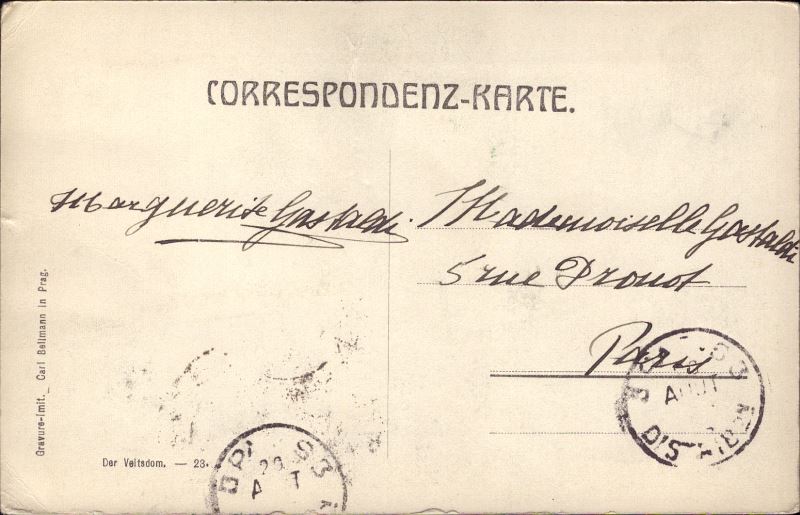 CORRESPONDENZ-KARTE.
Marguerite Gastaldi
Mademoiselle Gastaldi
5 rue Drouot
Paris
Gravure-Imit. Carl Bellmann in Prag.
Der Veitsdom. — 23.